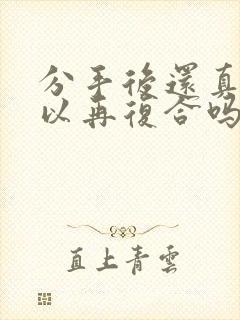 分手後還真
以再復合吗
直上青雲